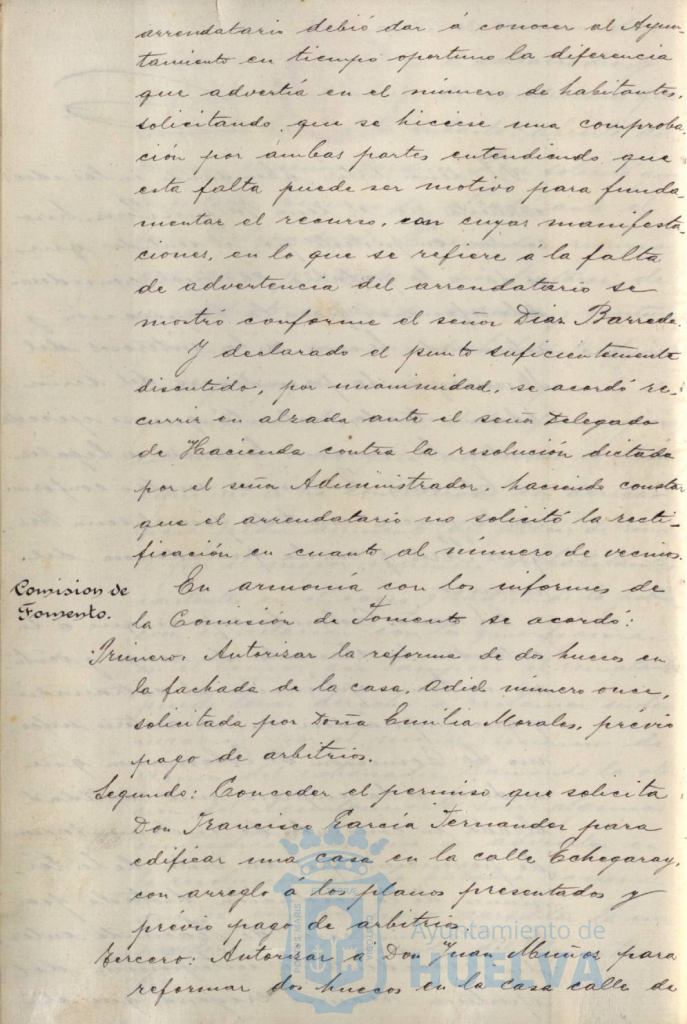 arrendatario debió dar á conocer al Ayun-
tamiento en tiempo oportuno la diferencia
que advertia en el número de habitantes,
solicitando, que se hiciese una comproba-
ción por ámbas partes entendiendo que
esta falta puede ser motivo para funda-
mentar el recurso, con cuyas manifesta-
ciones, en lo que se refiere á la falta
de advertencia del arrendatario se
mostró conforme el señor Diaz Barreda.
Y declarado el punto suficientemente
discutido, por unanimidad, se acordó re-
currir en alzada ante el señor Delegado
de Hacienda contra la resolución dictada
por el señor Administrador, haciendo constar
que el arrendatario no solicitó la recti-
ficación en cuanto al número de vecinos.
Comision de
Fomento.
En armonía con los informes de
la Comisión de Fomento se acordó:
Primero: Autorizar la reforma de dos huecos en
la fachada de la casa, Odiel número once,
solicitada por Doña Emilia Morales, prévio
pago de arbitrios.
Segundo: Conceder el permiso que solicita
Don Francisco García Fernandez para
edificar una casa en la calle Echegaray,
con arreglo á los planos presentados y
prévio pago de arbitrios.
Tercero: Autorizar á Don Juan Muñoz para
reformar dos huecos en la casa calle de
Ayuntamiento de
HUELVA